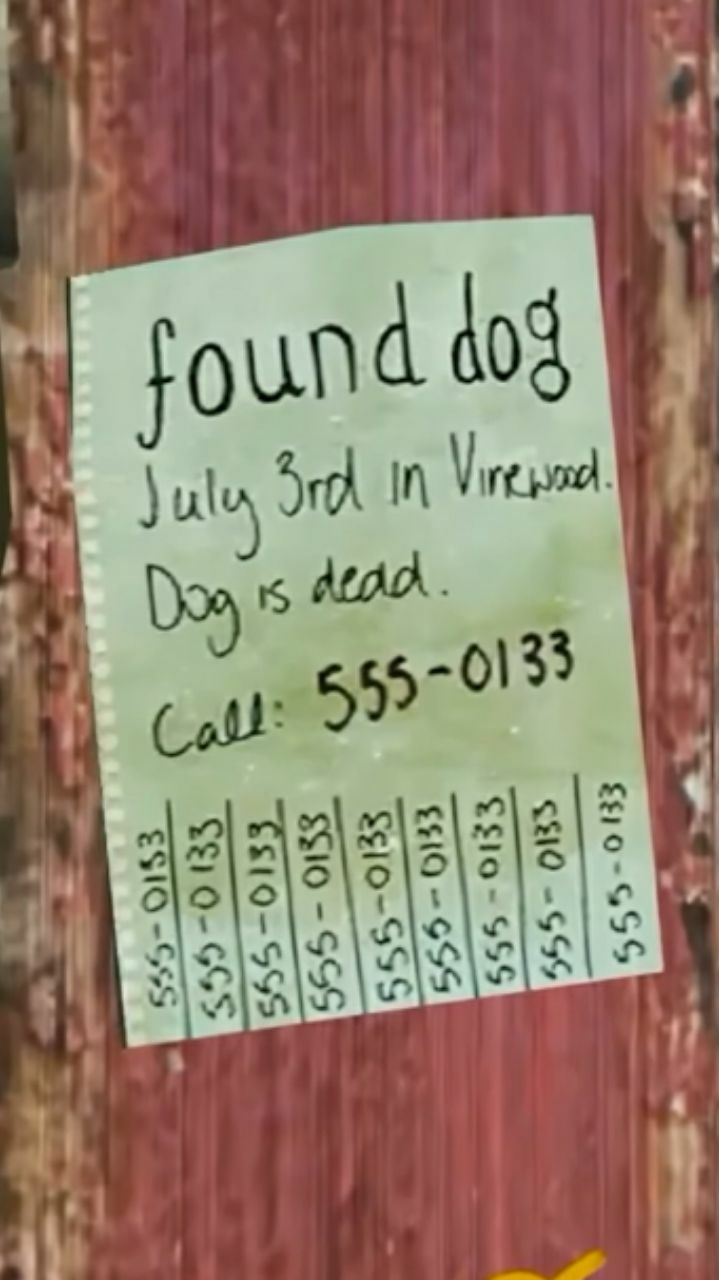 found dog
July 3rd in Vinewood.
Dog is dead.
Call: 555-0133
555-0133
555-0133
555-0133
555-0133
555-0133
555-0133
555-0133
555-0133
555-0133